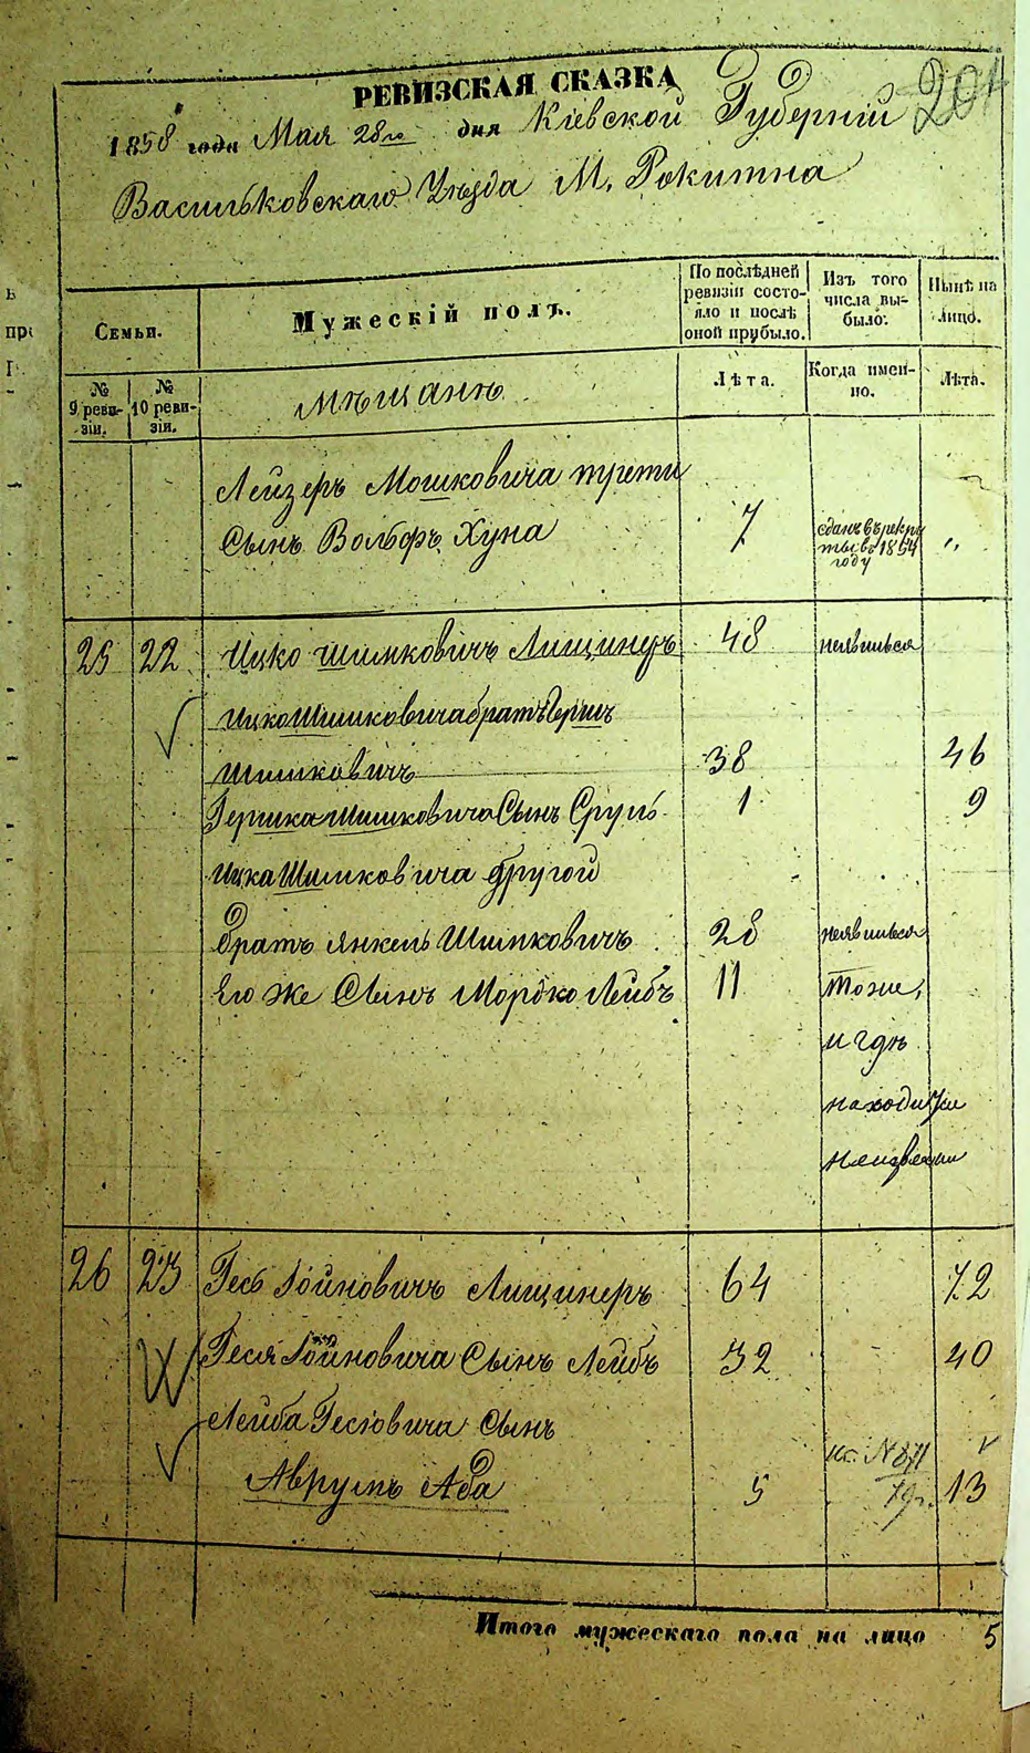 РЕВИЗСКАЯ СКАЗКА
204
1858 года Мая 28го дня Кіевской Губерніи
Васильковскаго Уѣзда М. Рокитна
Семьи.
Мужескій полъ.
По послѣдней ревизіи состояло и послѣ оной прибыло.
Изъ того числа выбыло.
Нынѣ на лицо.
№ 9 ревизіи.
№ 10 ревизіи.
мѣщанъ
Лѣта.
Когда именно.
Лѣта.
Лейзеръ Мошковича трети
Сынъ Вольфъ Хуна 7 сданъ въ рекруты въ 1854 году „
25 22 Ицко Шимковичъ Лищинеръ 48 неявился
Ицко Шимковича братъ Гершъ
Шимковичъ 38 46
Гершка Шимковича Сынъ Сруль 1 9
Ицка Шимковича другой
братъ Янкель Шимковичъ 28 неявился
Его же Сынъ Мордко Лейбъ 11 тоже,
и гдѣ
находится
неизвестно
26 23 Гесь Іойновичъ Лищинеръ 64 72
Геся Іойновича Сынъ Лейбъ 32 40
Лейба Гесіовича Сынъ
Аврумъ Аба 5 13
Итого мужескаго пола на лицо 5